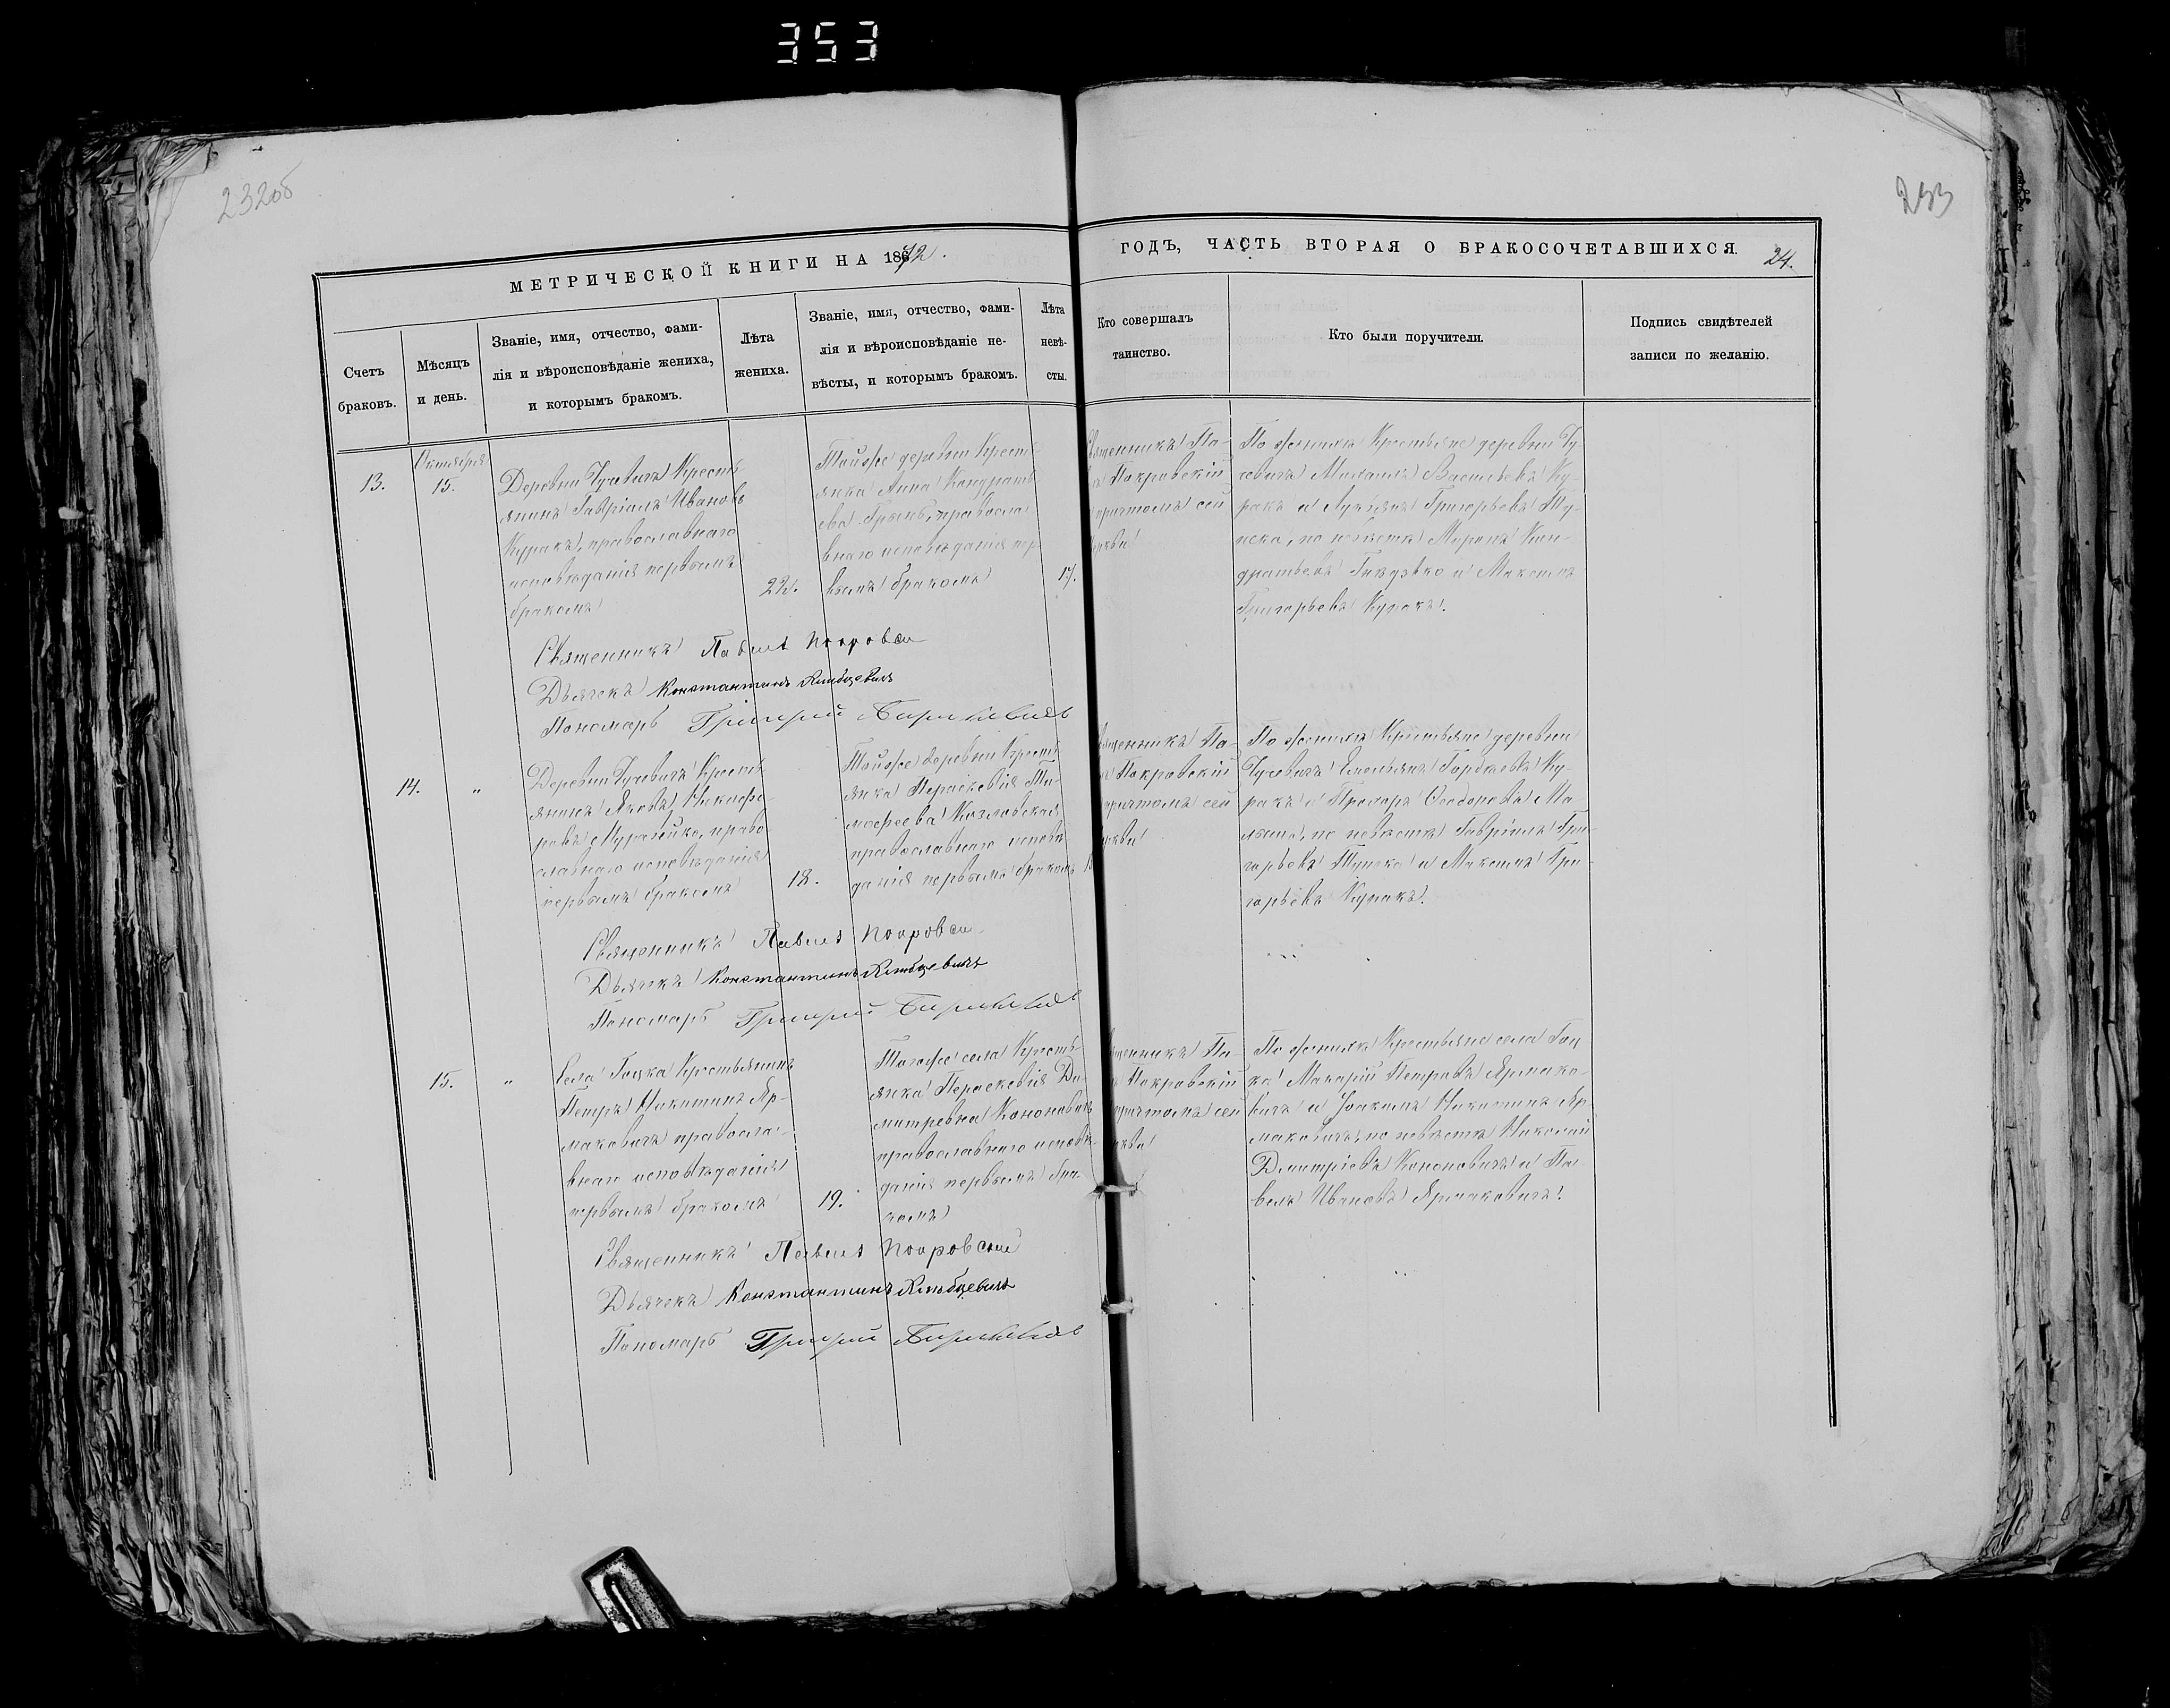 353
232об
233
МЕТРИЧЕСКОЙ КНИГИ НА 1872.
ГОДЪ, ЧАСТЬ ВТОРАЯ О БРАКОСОЧЕТАВШИХСЯ.
24.
Счетъ
браковъ.
Мѣсяцъ
и день.
Званіе, имя, отчество, фами-
лія и вѣроисповѣданіе жениха,
и которымъ бракомъ.
Лѣта
жениха.
Званіе, имя, отчество, фами-
лія и вѣроисповѣданіе не-
вѣсты, и которымъ бракомъ.
Лѣта
невѣ-
сты.
Кто совершалъ
таинство.
Кто были поручители.
Подпись свидѣтелей
записи по желанію.
13.
Октября
15.
Деревни Гучевичъ Кресть-
янинъ Гавріилъ Ивановъ
Куракъ, православнаго
исповѣданія первымъ
бракомъ
22.
Тойже деревни Кресть-
янка Анна Кондрать-
ева православ-
наго исповѣданія пер-
вымъ бракомъ
17.
Священникъ Па-
Покровскій
причтомъ сей
По женихѣ Крестьяне деревни Гу-
чевичъ Михаилъ Васильевъ Ку-
ракъ и Григорьевъ
по невѣстѣ Миронъ Кон-
дратьевъ и Максимъ
Григорьевъ Куракъ.
Священникъ Павелъ Покровскій
Дьячекъ Константинъ
Пономарь Григорій
14.
"
Деревни Гучевичъ Кресть-
янинъ Яковъ Никифо-
ровъ право-
славнаго исповѣданія
первымъ бракомъ
18.
Тойже деревни Кресть-
янка Параскевія Ти-
моѳеева Козловская,
православнаго исповѣ-
данія первымъ бракомъ
Священникъ Па-
Покровскій
причтомъ сей
По женихѣ Крестьяне деревни
Гучевичъ Емельянъ Ку-
ракъ и Прохоръ Ѳеодоровъ
по невѣстѣ Гавріилъ Гри-
горьевъ и Максимъ Гри-
горьевъ Куракъ.
Священникъ Павелъ Покровскій
Дьячекъ Константинъ
Пономарь Григорій
15.
"
Села Гоцка Крестьянинъ
Петръ Никитинъ Яр-
маковичъ православ-
наго исповѣданія
первымъ бракомъ
19.
Тогоже села Кресть-
янка Параскевія Ди-
митревна Кононовичъ
православнаго исповѣ-
данія первымъ бра-
комъ
Священникъ Па-
Покровскій
причтомъ сей
По женихѣ Крестьяне села Гоц-
ка Макарій Петровъ Ярмако-
вичъ и Іоакимъ Никитинъ Яр-
маковичъ, по невѣстѣ Николай
Димитріевъ Кононовичъ и Па-
велъ Ивановъ Ярмаковичъ.
Священникъ Павелъ Покровскій
Дьячекъ Константинъ
Пономарь Григорій